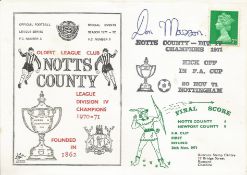 OFFICIAL FOOTBALL
LEAGUE SERIES
SPECIAL EVENTS
SEASON 1971-72
OLDEST LEAGUE CLUB
NOTTS
COUNTY
LEAGUE
DIVISION IV
CHAMPIONS
1970-71
FOUNDED IN
1862
Don Masson
NOTTS COUNTY - DIV IV
CHAMPIONS 1971
KICK OFF
IN F.A. CUP
20 NOV 71
NOTTINGHAM
FINAL SCORE
NOTTS COUNTY
NEWPORT COUNTY
F.A. CUP
FIRST
ROUND
20th Nov. 1971